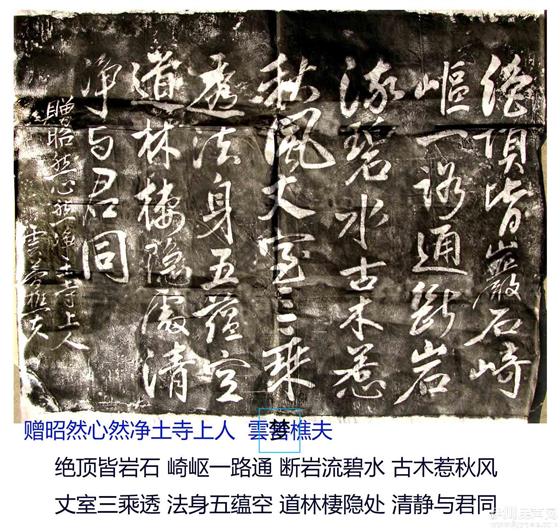 絕頂皆巖石崎
嶇一路通斷岩
流碧水古木惹
秋風丈室三乘
透法身五蘊空
道林棲隐處清
净与君同
贈昭然心然净土寺上人
雲夢樵夫
赠昭然心然净土寺上人 雲梦樵夫
绝顶皆岩石 崎岖一路通 断岩流碧水 古木惹秋风
丈室三乘透 法身五蕴空 道林棲隐处 清静与君同